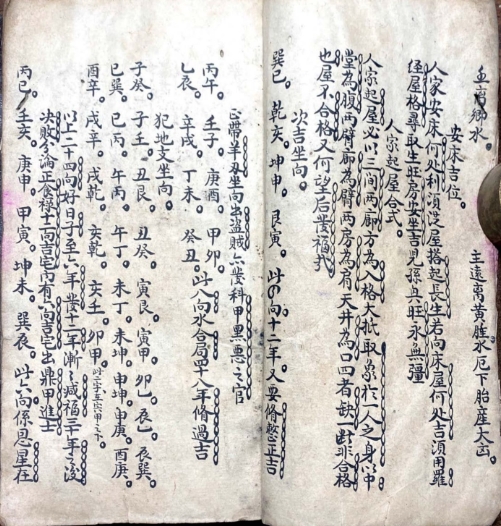 主离鄉水。 主遠离黃腫水厄下胎産大凶。
安床吉位。
人家安床何処利須没屋搭起長生若向床屋何処吉須用羅
経屋格尋取生旺房中安坐吉児孫興旺永無彊
人家起屋合式。
人家起屋必以三间两廊方為入格大抵取象於一人之身以中
堂為腹两臂廊為臂两房為肩天井為口四者缺一断非合格
也屋不合格又何望后發福哉
次吉坐向。
巽巳。 乾亥。 坤申。 艮寅。 此の向十二年又要脩整正吉
正帶羊刃坐向出盗賊六發科甲黑要之官
丙午。 壬子。 庚酉。 甲卯。
乙辰。 辛戌。 丁未。 癸丑。 此八向水合局零八年脩過吉
犯地支坐向。
子癸。 子壬。 丑艮。 丑癸。 寅艮。 寅甲。 卯乙。 辰乙。 辰巽。
巳巽。 巳丙。 午丙。 午丁。 未丁。 未坤。 申坤。 申庚。 酉庚。
酉辛。 戌辛。 戌乾。 亥乾。 亥壬。 卯甲。
以上二十四向好日子至六年發十二年漸々减福三十年之後
决敗分淪正食禄十二向吉宅内有六向吉宅出鼎甲進士
丙巳。 壬亥。 庚申。 甲寅。 坤未。 巽辰。 此六向係恩星在